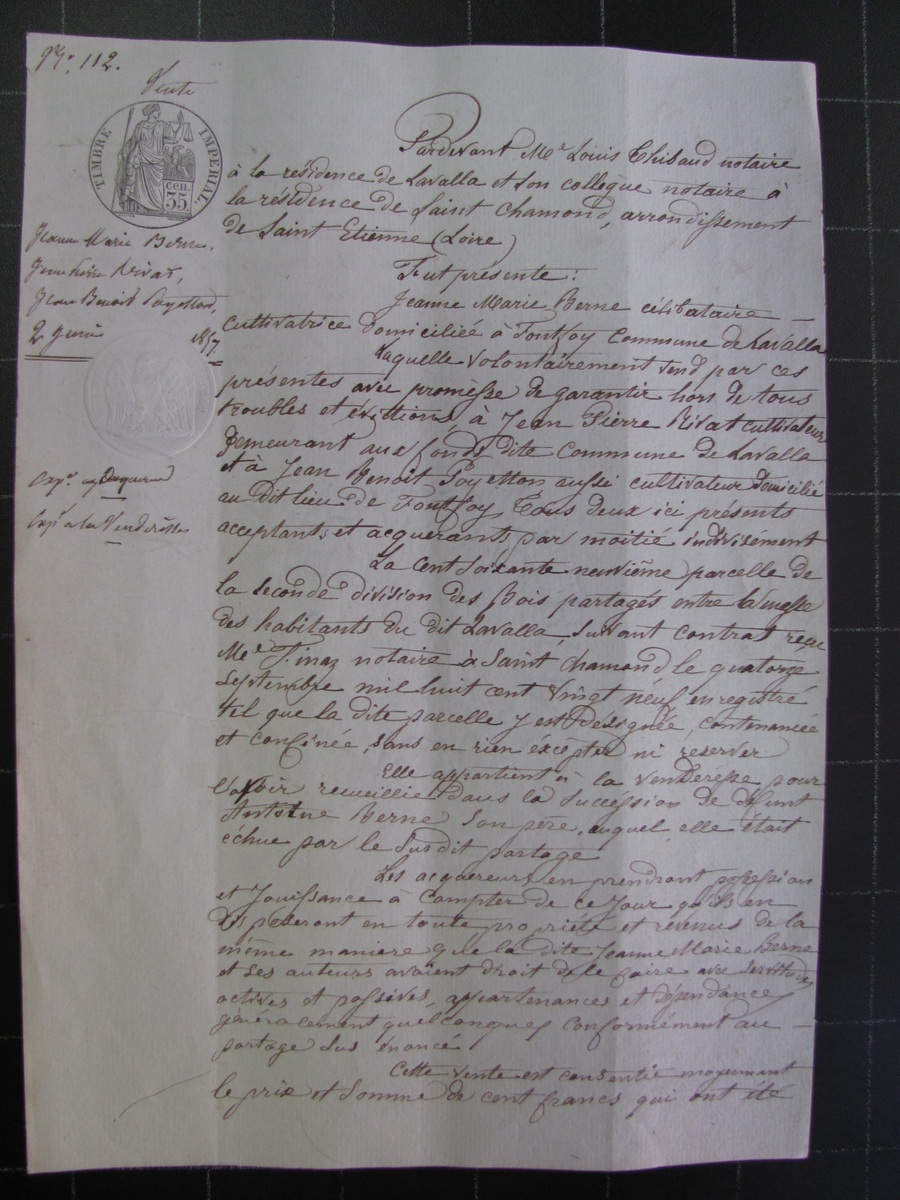 N°. 112.
Vente
TIMBRE IMPERIAL
35 cen.
Jeanne Marie Berne,
Jean Pierre Rivat,
Jean Benoit Poyetton,
1857
exp. à la Venderesse
Pardevant Me Louis Thibaud notaire
à la résidence de Lavalla et son collegue notaire à
la résidence de Saint Chamond, arrondissement
de Saint Etienne (Loire)
Fut présente :
Jeanne Marie Berne célibataire
cultivatrice domiciliée à Fontfoy Commune de Lavalla
Laquelle volontairement vend par ces
présentes avec promèsse de garantir hors de tous
troubles et évictions, à Jean Pierre Rivat cultivateur
demeurant aux fonds dite Commune de Lavalla
et à Jean Benoit Poyetton aussi cultivateur domicilié
au dit lieu de Fontfoy, Tous deux ici présents
acceptants et acquerants par moitié indivisément
La cent soixante neuvième parcelle de
la seconde division des Bois partagés entre la masse
des habitants du dit Lavalla, suivant contrat reçu
Me Finaz notaire à Saint Chamond le quatorze
septembre mil huit cent vingt neuf, enregistré
tel que la dite parcelle y est désignée, contenancée
et confinée, sans en rien éxcepter ni reserver
Elle appartient à la venderesse pour
l'avoir recueillie dans la succéssion de défunt
Antoine Berne son père, auquel elle était
échue par le susdit partage
Les acquereurs en prendront possession
et Jouissance à Compter de ce Jour qu'ils en
disposeront en toute propriété et revenus de la
même maniere que la dite Jeanne Marie Berne
et ses auteurs avaient droit de le faire avec servitudes
actives et passives, appartenances et dépendances
généralement quelconques conformément au
partage sus énoncé
Cette vente est consentie moyennant
le prix et somme de cent francs qui ont été